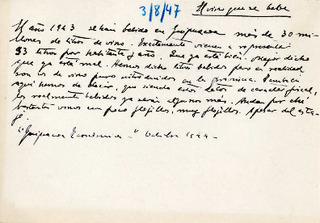 3/8/47
El vino que se bebe
El año 1943 se han bebido en Guipúzcoa más de 30 mi-
llones de litros de vino. Exactamente vienen a
53 litros por habitante y año. Que ya está bien. Mejor dicho
que ya está mal. Hemos dicho litros bebidos pero en realidad
son los de vino puros introducidos en la provincia. También
aquí hemos de decir, que siendo estos datos de carácter fiscal,
los realmente bebidos ya serán algunos más. Andan por ahí
bastantes vinos con pasos flojillos, muy flojillos. Apesar del
"Guipúzcoa Económica" Octubre 1944-